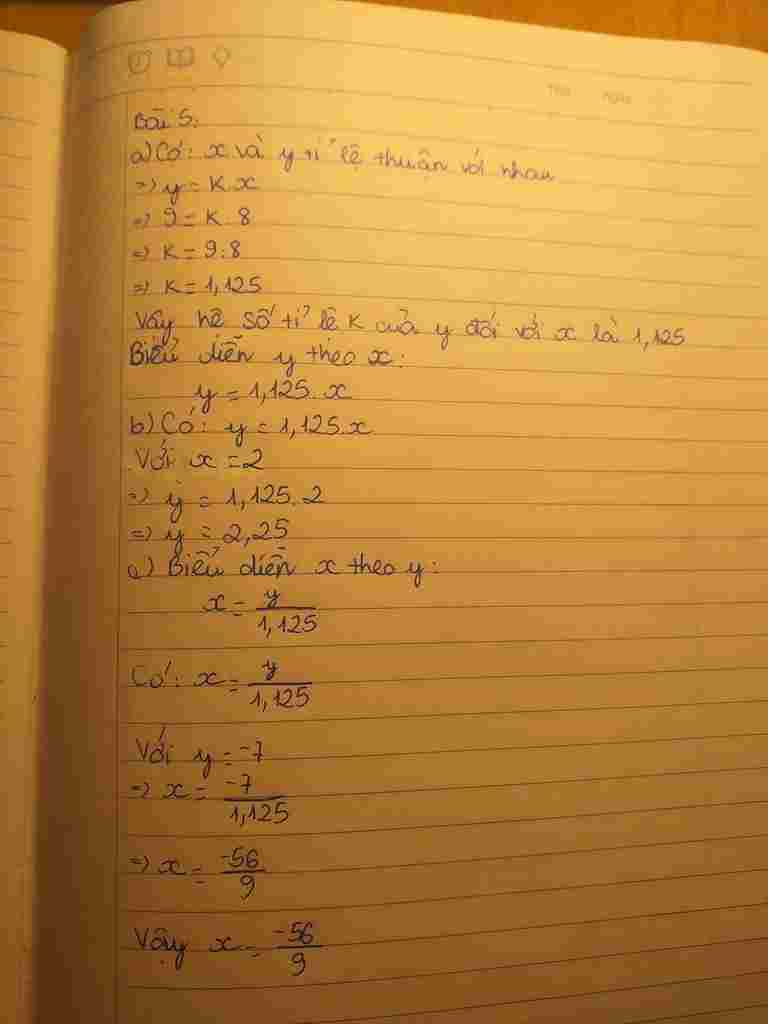 Bài 5:
a) Có: x và y tỉ lệ thuận với nhau
=> y = k.x
=> 9 = k.8
=> k = 9:8
=> k = 1,125
Vậy hệ số tỉ lệ k của y đối với x là 1,125
Biểu diễn y theo x:
y = 1,125.x
b) Có: y = 1,125.x
Với x = 2
=> y = 1,125.2
=> y = 2,25
c) Biểu diễn x theo y:
x = y/1,125
Có: x = y/1,125
Với y = -7
=> x = -7/1,125
=> x = -56/9
Vậy x = -56/9